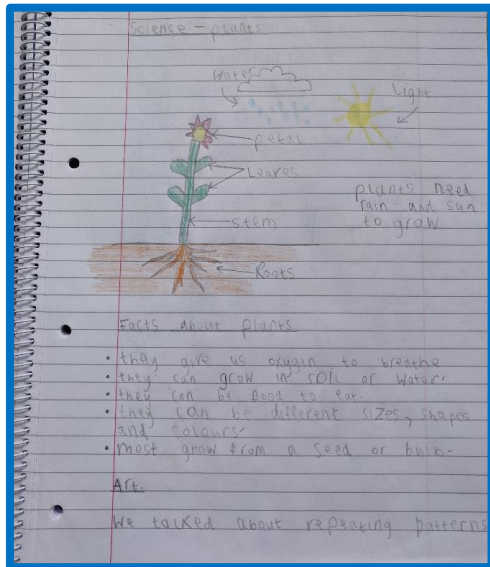 Science - plants
Water
Light
petal
Leaves
plants need
rain and sun
to grow
stem
Roots
Facts about plants
• they give us oxygen to breathe
• they can grow in soil or water.
• they can be food to eat.
• they can be different sizes, shapes
and colours.
• most grow from a seed or bulb.
Art.
We talked about repeating patterns